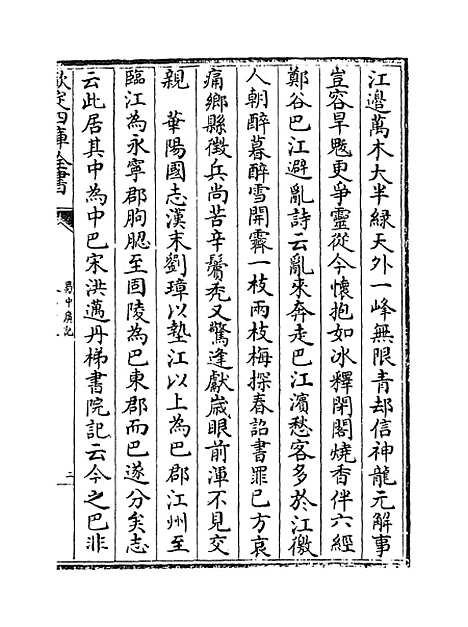 江邊萬木大半緑天外一峰無限青却信神龍元解事
豈容旱魃更爭靈從今懷抱如冰釋閉閣燒香伴六經
鄭谷巴江避亂詩云亂來奔走巴江濱愁客多於江徼
人朝醉暮醉雪開霽一枝兩枝梅探春詔書罪已方哀
痛鄉縣徴兵尚苦辛鬢秃又驚逢獻歲眼前渾不見交
親　華陽國志漢末劉璋以墊江以上為巴郡江州至
臨江為永寧郡朐䏰至固陵為巴東郡而巴遂分矣志
云此居其中為中巴宋洪邁丹梯書院記云今之巴非
欽定四庫全書
蜀中廣記